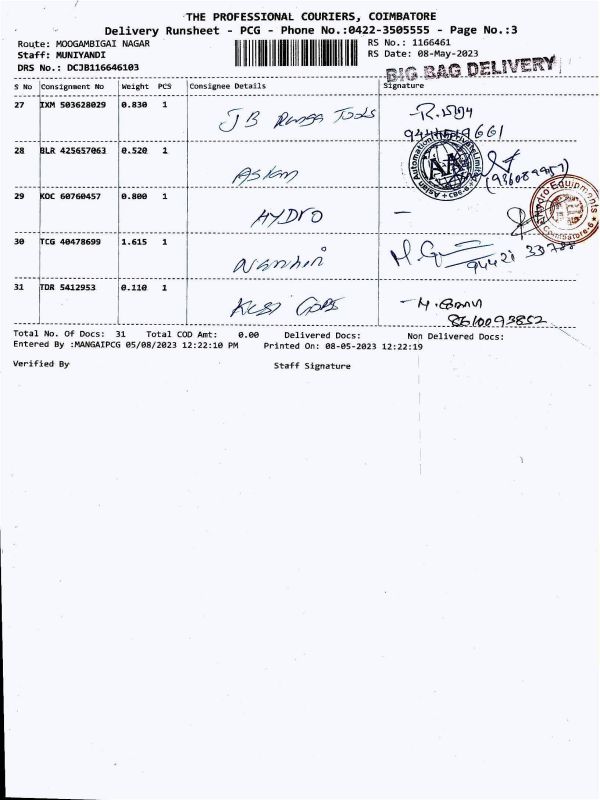 THE PROFESSIONAL COURIERS, COIMBATORE
Delivery Runsheet - PCG - Phone No.:0422-3505555 - Page No.:3
Route: MOOGAMBIGAI NAGAR RS No.: 1166461
Staff: MUNIYANDI RS Date: 08-May-2023
DRS No.: DCJB116646103
BIG BAG DELIVERY
S No Consignment No Weight PCS Consignee Details Signature
27 IXM 503628029 0.830 1 JB Tools
28 BLR 425657063 0.520 1 Asian
29 KOC 60760457 0.800 1 HYDRO
Hydro Equipments
Coimbatore-6
30 TCG 40478699 1.615 1
31 TDR 5412953 0.110 1
8610093852
Total No. Of Docs: 31 Total COD Amt: 0.00 Delivered Docs: Non Delivered Docs:
Entered By :MANGAIPCG 05/08/2023 12:22:10 PM Printed On: 08-05-2023 12:22:19
Verified By Staff Signature